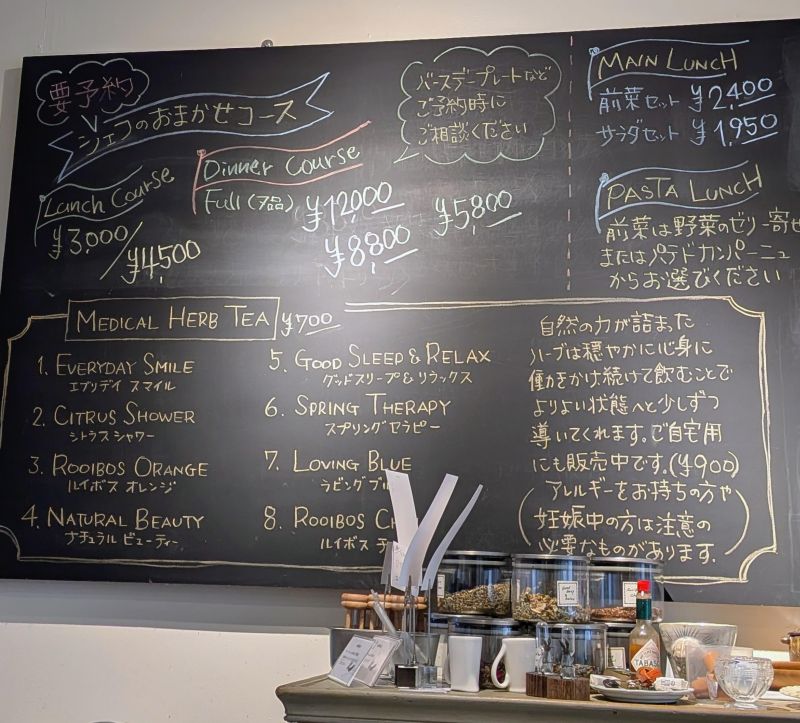 要予約
シェフのおまかせコース
Lunch Course
¥3,000/¥4,500
Dinner Course
Full(7品) ¥12,000
¥8,800
¥5,800
バースデープレートなど
ご予約時に
ご相談ください
MAIN LUNCH
前菜セット ¥2,400
サラダセット ¥1,950
PASTA LUNCH
前菜は野菜のゼリー寄せ
またはパテドカンパーニュ
からお選びください
MEDICAL HERB TEA ¥700
1. EVERYDAY SMILE
エブリデイ スマイル
2. CITRUS SHOWER
シトラス シャワー
3. ROOIBOS ORANGE
ルイボス オレンジ
4. NATURAL BEAUTY
ナチュラル ビューティー
5. GOOD SLEEP & RELAX
グッドスリープ & リラックス
6. SPRING THERAPY
スプリング セラピー
7. LOVING BLUE
ラビング ブル
8. ROOIBOS C
ルイボス
自然の力が詰まった
ハーブは穏やかに心身に
働きかけ続けて飲むことで
よりよい状態へと少しずつ
導いてくれます。ご自宅用
にも販売中です。(¥900)
(アレルギーをお持ちの方や
妊娠中の方は注意の
必要なものがあります。)
TABASCO